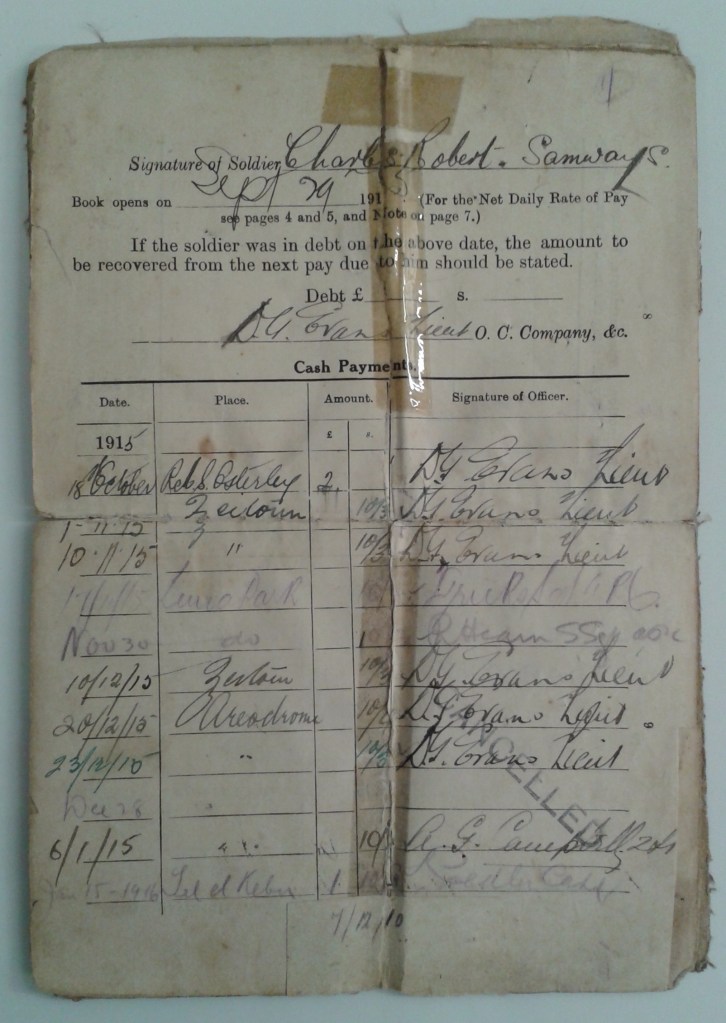 Signature of Soldier, Charles Robert. Samways.
Book opens on Sept 29 191 (For the Net Daily Rate of Pay
see pages 4 and 5, and Note on page 7.)
If the soldier was in debt on the above date, the amount to
be recovered from the next pay due to him should be stated.
Debt £ s.
D.G. Evans Lieut O. C. Company, &c.
Cash Payments.
Date. Place. Amount. Signature of Officer.
£ s.
1915
18 October Osterley 2 D G Evans Lieut
1-11-15 Zeitoun 10/3 D.G. Evans Lieut
10.11.15 " 10/3 D G Evans Lieut
Luna Park
Nov 30 do
10/12/15 Zeitoun 10/3 D.G. Evans Lieut
20/12/15 Areodrome 10/ D.G. Evans Lieut
23/12/15 " 10/3 D.G. Evans Lieut
Dec 28
CANCELLED
6/1/15 " 10/ A. G. Campbell
Jan 15-1916 Tel el Kebir 1
7/12/10